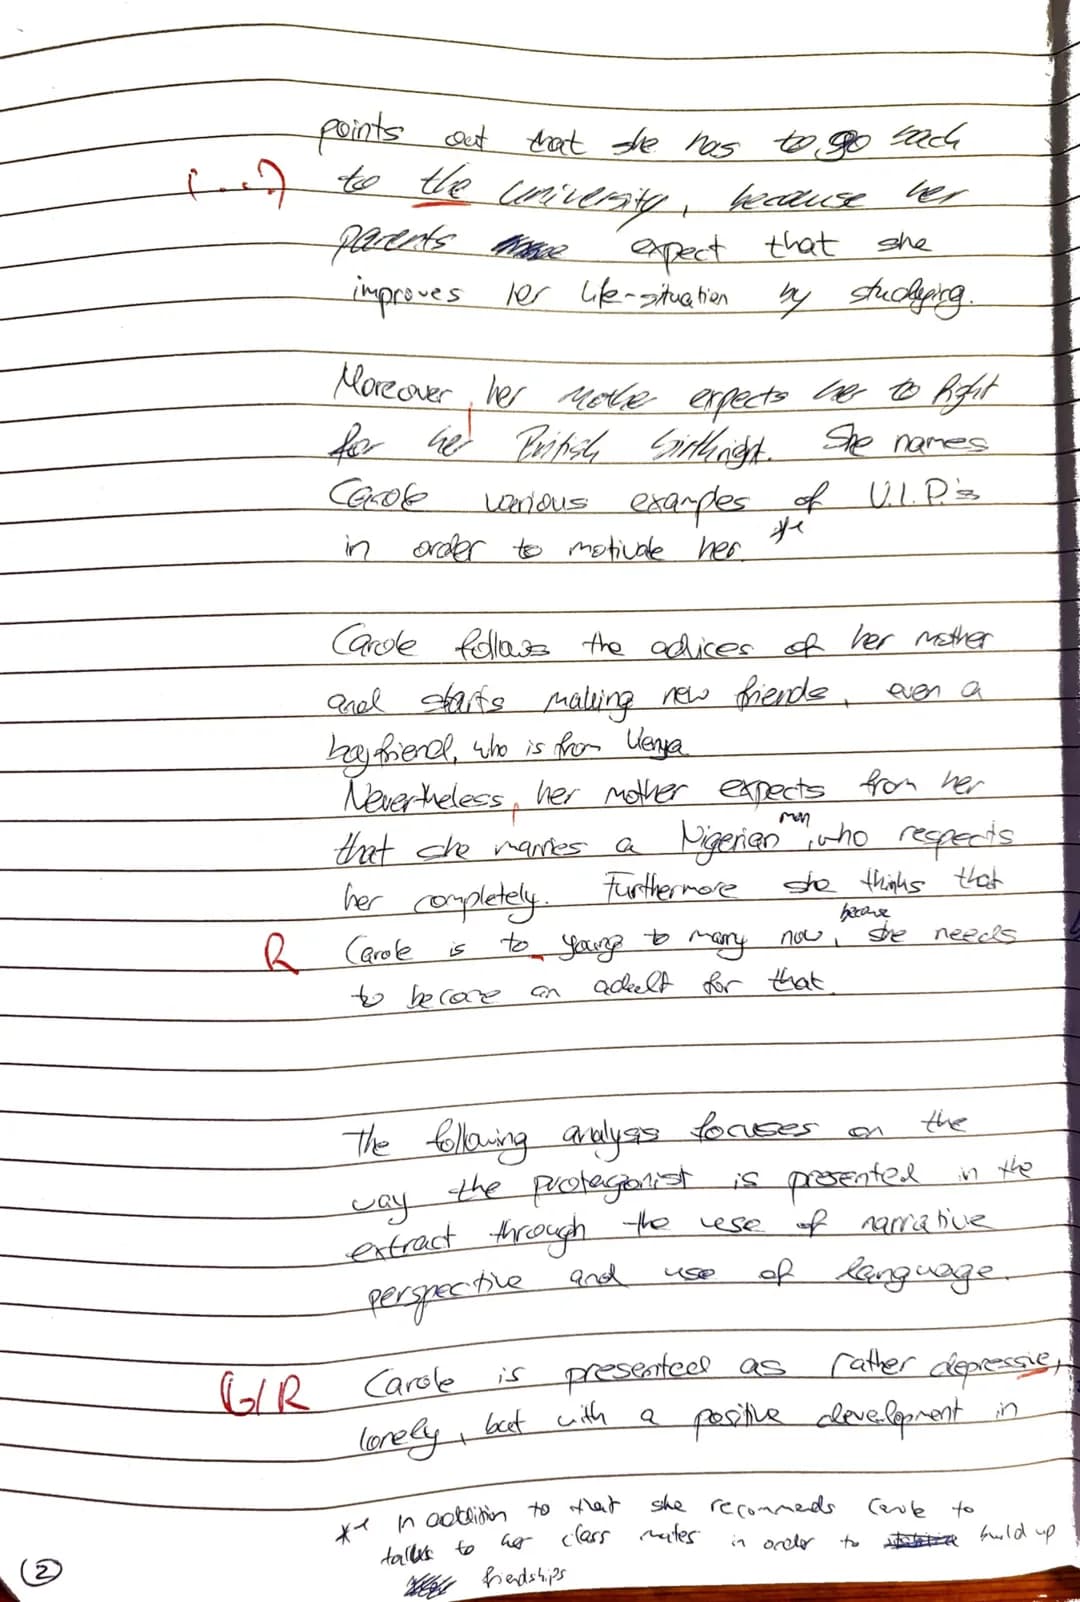 points out that she has to go back
(...) to the university, because her
parents expect that she
improves her life-situation by studying.
Moreover, her mothe expects her to fight
for her British birthright. She names
Carole various examples of V.I.P.'s
in order to motivate her. *1
Carole follows the advices of her mother
and starts making new friends, even a
boyfriend, who is from Kenya
Nevertheless, her mother expects from her
that she marries a Nigerian man, who respects
her completely. Furthermore she thinks that
R Carole is to young to marry now, because she needs
to become an adult for that.
The following analysis focuses on the
way the protagonist is presented in the
extract through the use of narrative
perspective and use of language.
G/R Carole is presented as rather depressie,
lonely, but with a positive development in
*1 In addition to that she recommends Carole to
talks to her class mates in order to build up
friendships
2